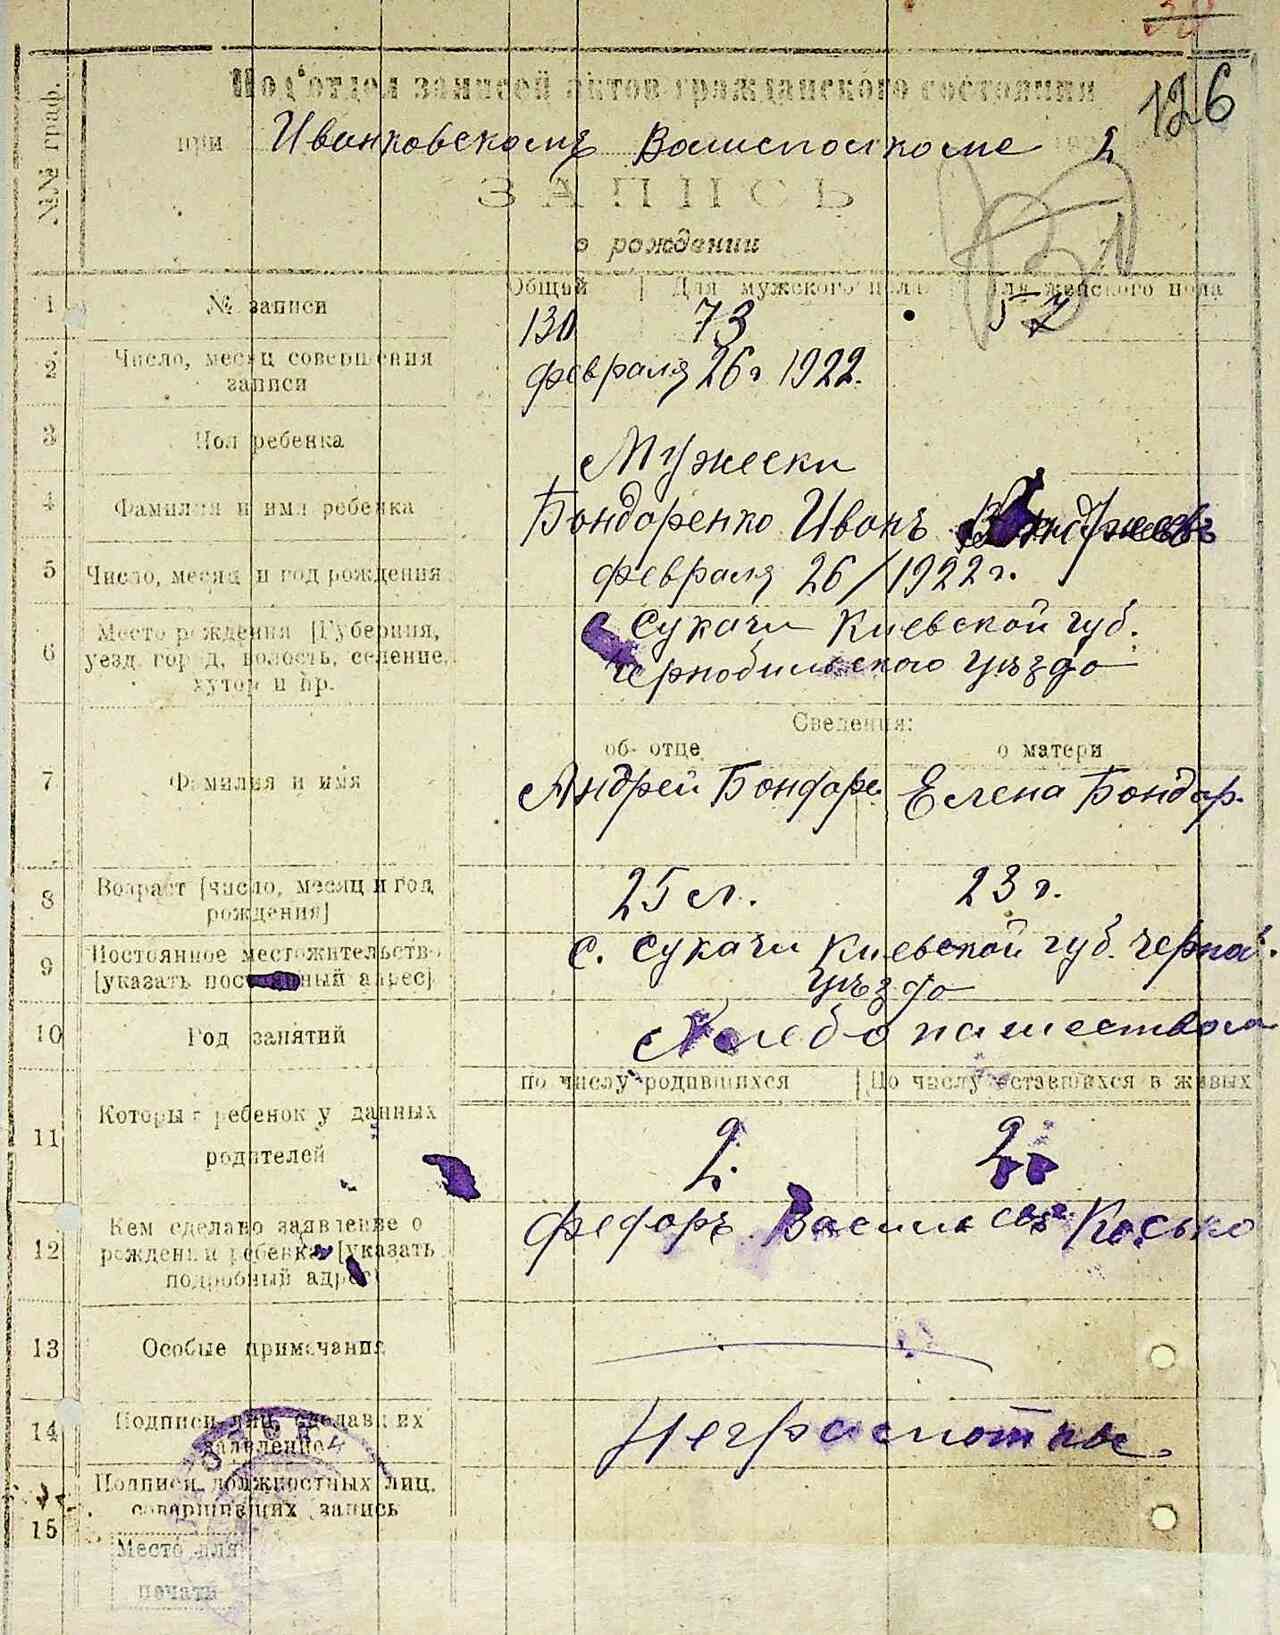 126
№№ граф.
Под'отдел записей актов гражданского состояния
при Иванковскомъ Волисполкоме
ЗАПИСЬ
о рождении
Общий Для мужского пола Для женского пола
1 № записи 130 73 57
2 Число, месяц совершения записи февраля 26 г 1922.
3 Пол ребенка Мужески
4 Фамилия и имя ребенка Бондаренко Иванъ
5 Число, месяц и год рождения февраля 26/1922 г.
6 Место рождения [Губерния, уезд, город, волость, селение, хутор и пр. с Сукачи Киевской губ.
Чернобильского уъздо
Сведения:
об отце о матери
7 Фамилия и имя Андрей Бондаре Елена Бондар.
8 Возраст [число, месяц и год рождения] 25 л. 23 г.
9 Постоянное местожительство [указать постоянный адрес] с. Сукачи Киевской губ. Черноб.
уъздо
10 Род занятий Хлебопашеством
по числу родившихся По числу оставшихся в живых
11 Который ребенок у данных родителей 2. 2.
12 Кем сделано заявление о рождении ребенка [указать подробный адрес] Федоръ Косько
13 Особые примечания
14 Подписи лиц, сделавших заявление Неграмотные.
15 Подписи должностных лиц, совершивших запись
Место для
печати